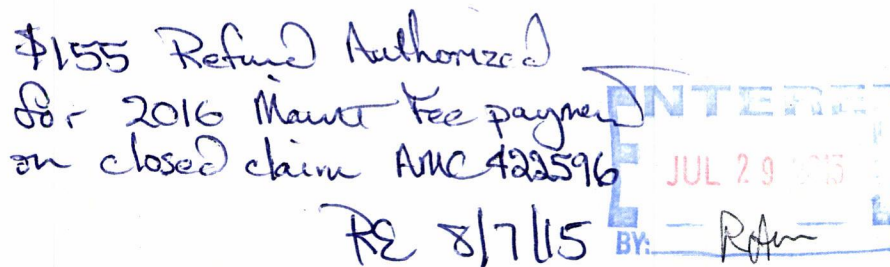 $155 Refund Authorized
for 2016 Maint Fee payment
on closed claim AMC 422596
RE 8/7/15
ENTERE
JUL 29 2015
BY: